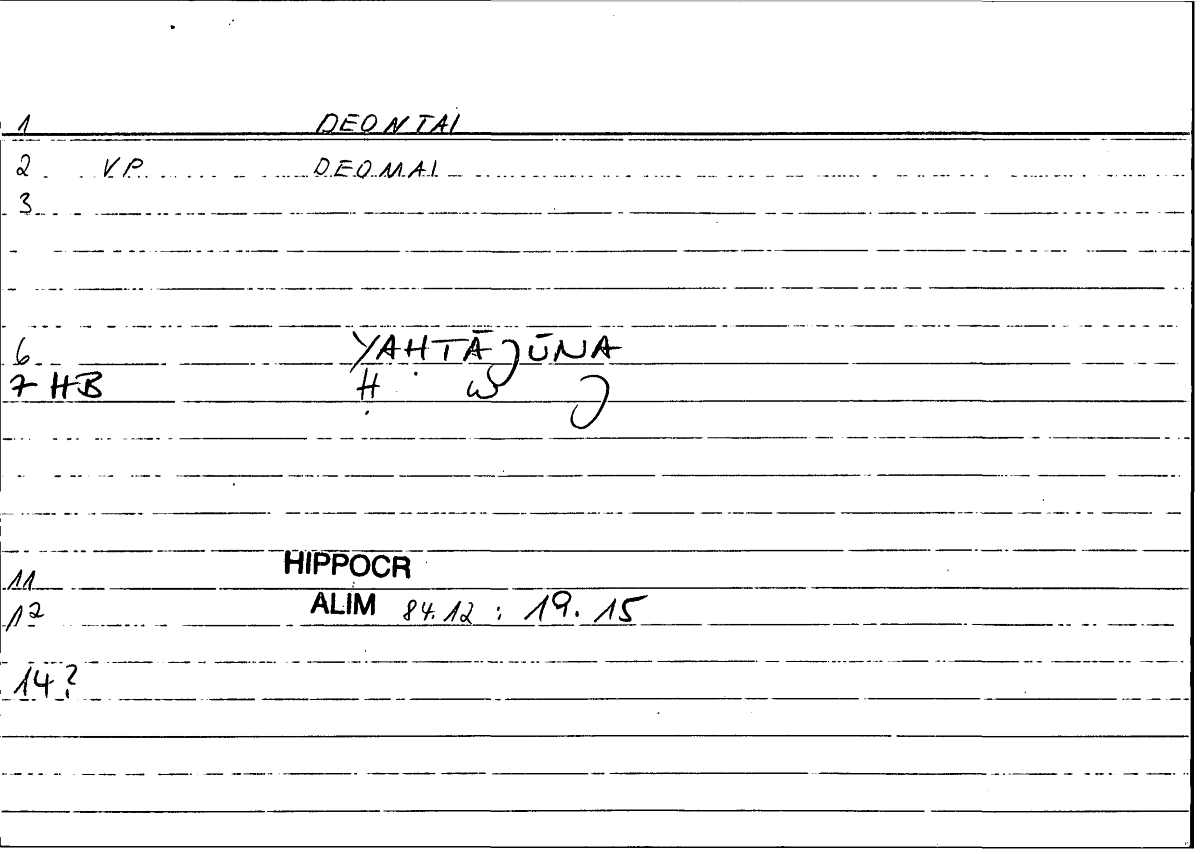 1 DEONTAI
2 V.P. DEOMAI
3
6 YAḤTĀJŪNA
7 HB Ḥ W J
HIPPOCR
11
12 ALIM 84.12 : 19.15
14?